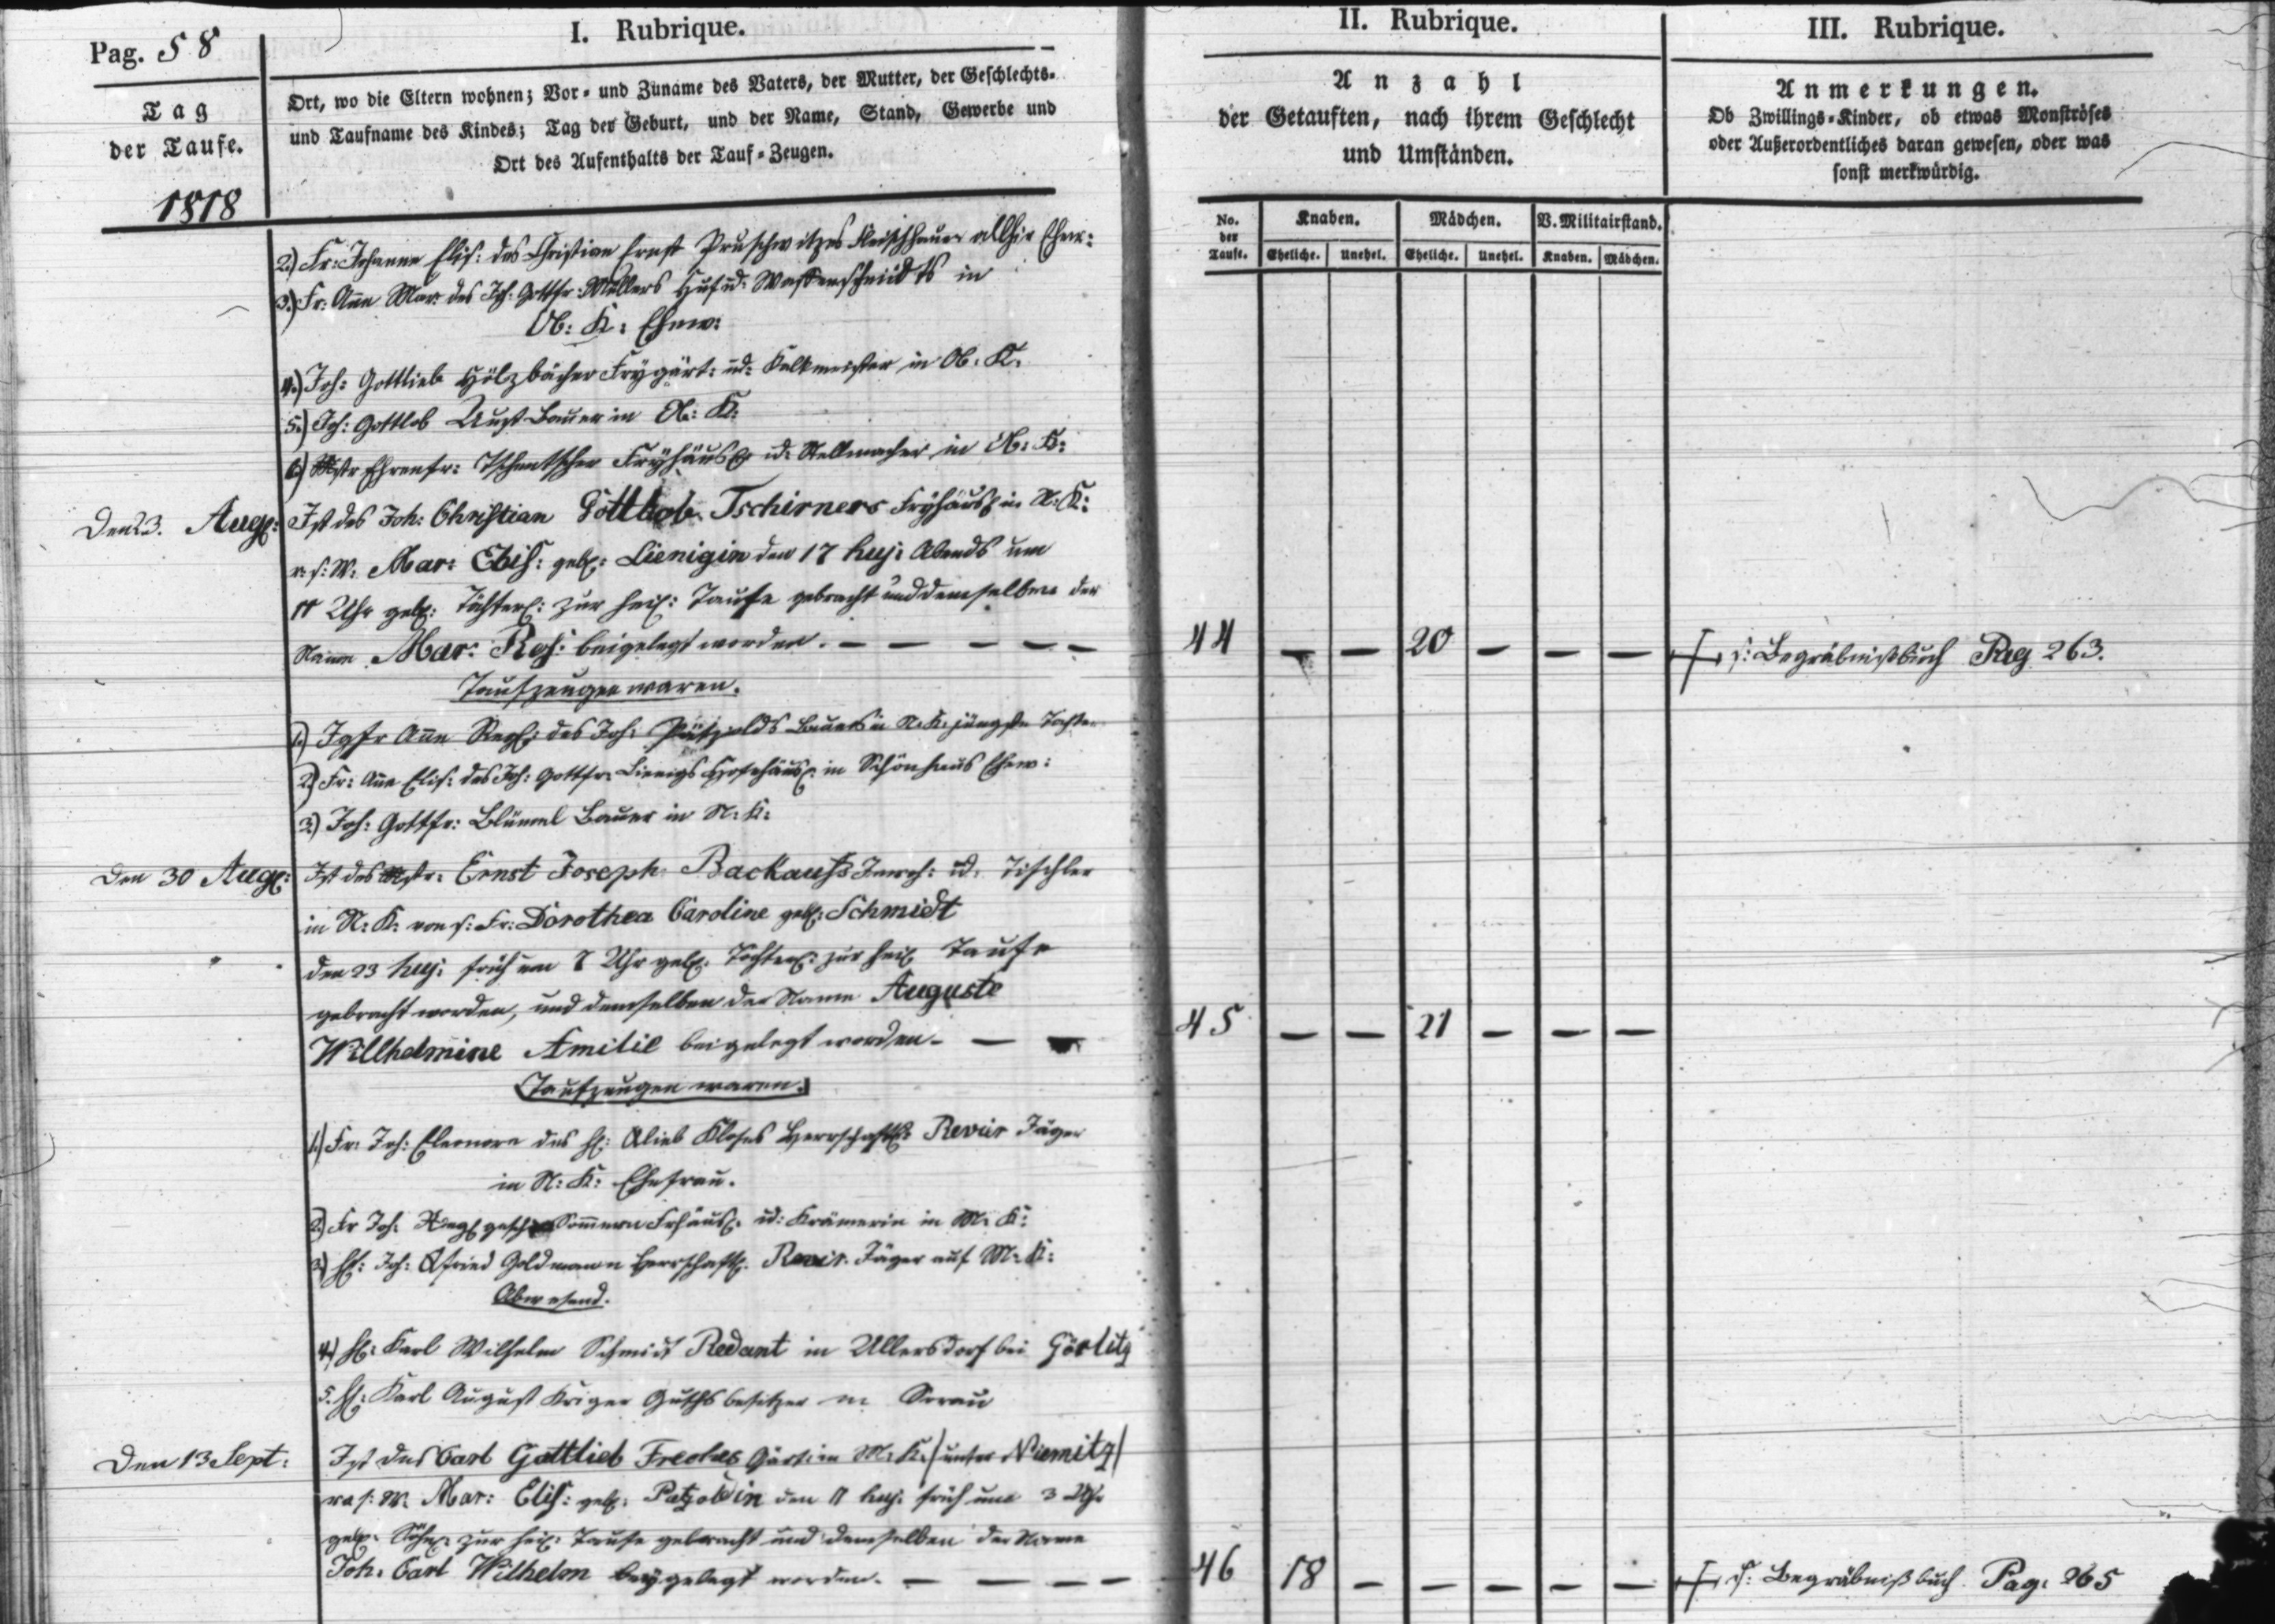 Pag. 58
I. Rubrique.
Tag
der Taufe.
1818
Ort, wo die Eltern wohnen; Vor- und Zuname des Vaters, der Mutter, der Geschlechts-
und Taufname des Kindes; Tag der Geburt, und der Name, Stand, Gewerbe und
Ort des Aufenthalts der Tauf-Zeugen.
2.) Fr: Johanne Elis: des Christian Ernst Pruschwitzes Fleischhauer allhie Ehew:
3.) Fr: Anne Mar: des Joh: Gottfr: Müllers Huf ud: Waffenschmidts in
Ob: K: Ehew:
4.) Joh: Gottlieb Hölzbächer Freygärt: ud: Kalkmeister in Ob. K.
5.) Joh: Gottlob Aust Bauer in Ob: K:
6.) Mstr Ehrenfr: Tschentscher Freyhäusl ud: Stellmacher in Ob: K:
Den 23. Aug: Ist des Joh: Christian Gottlob Tschirners Freyhäusl in N: K:
v: s: W: Mar: Elis: geb: Lienigin den 17 huj: Abends um
11 Uhr geb: Töchterl: zur heil: Taufe gebracht und demselben der
Name Mar: Ros: beigelegt worden. — — — — —
Taufzeugen waren.
1.) Jgfr Anne Ros: des Joh: Pätzolds Bauers in N: K: jüngste Tochter
2.) Fr: Anne Elis: des Joh: Gottfr: Lienigs Hofehäusl: in Schönhaus Ehew:
3.) Joh: Gottfr: Blümel Bauer in N: K:
Den 30 Aug: Ist des Mstr: Ernst Joseph Backaufs Inwoh: ud: Tischler
in N: K: von s: Fr: Dorothea Caroline geb: Schmidt
den 23 huj: früh um 7 Uhr geb: Töchterl: zur heil Taufe
gebracht worden, und demselben der Name Auguste
Willhelmine Amilie beigelegt worden. — —
Taufzeugen waren.
1.) Fr: Joh: Eleonore des H: Glieb Kloses Herrschaftl: Revier Jäger
in N: K: Ehefrau.
2.) Fr Joh: Sommern Frhäusl: ud: Krämerin in M: K:
3.) H: Joh: Gfried Goldmann Herrschaftl: Revir Jäger auf M: K:
Abwesend.
4.) H: Karl Wilhelm Schmidt Redant in Ullersdorf bei Görlitz
5. H: Karl August Kriger Guthsbesitzer in Sorau
Den 13 Sept: Ist des Carl Gottlieb Gärt: in M: K: /unter Niemitz/
v: s: W: Mar: Elis: geb: Patzoldin den 11 huj: früh um 3 Uhr
geb: Söhnl: zur heil: Taufe gebracht und demselben der Name
Joh: Carl Wilhelm beygelegt worden. — — — —
II. Rubrique.
Anzahl
der Getauften, nach ihrem Geschlecht
und Umständen.
No. der Taufe. Knaben. Mädchen. V. Militairstand.
Eheliche. Unehel. Eheliche. Unehel. Knaben. Mädchen.
44 — — 20 — — —
45 — — 21 — — —
46 18 — — — — —
III. Rubrique.
Anmerkungen.
Ob Zwillings-Kinder, ob etwas Monströses
oder Außerordentliches daran gewesen, oder was
sonst merkwürdig.
s: Begräbnißbuch Pag 263.
s: Begräbnißbuch Pag: 265